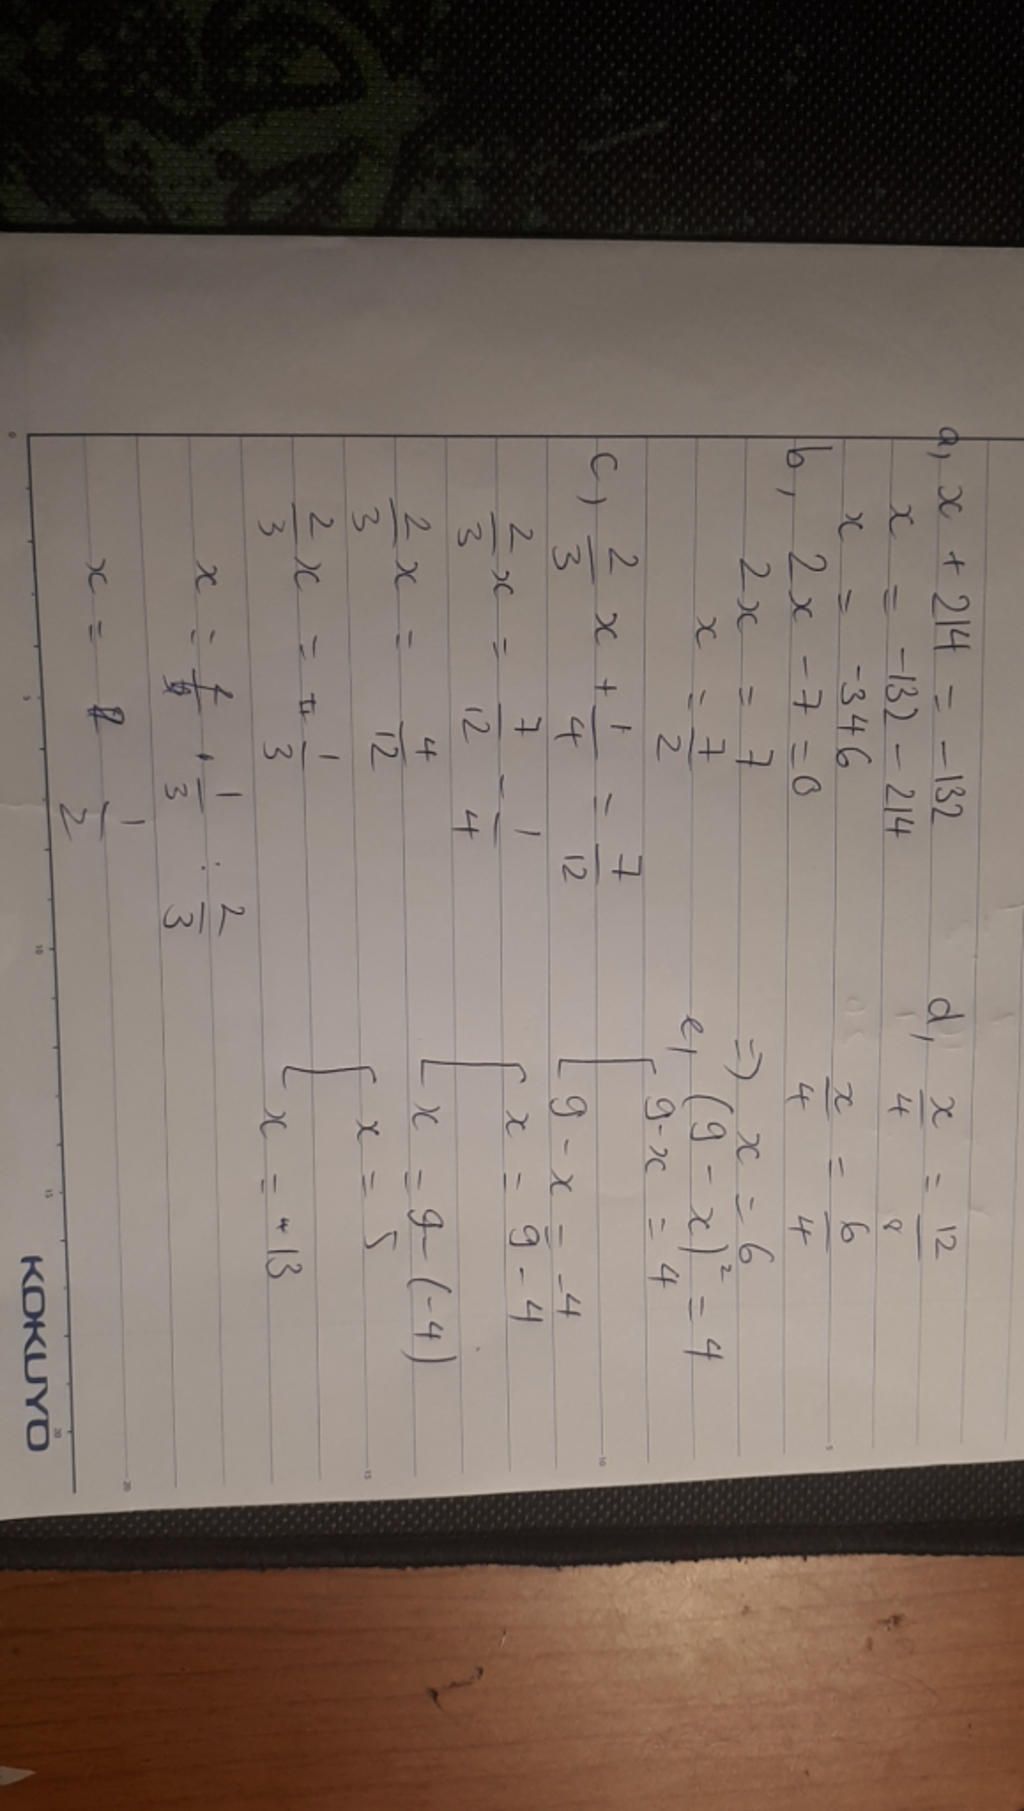 a, x + 214 = -132
x = -132 - 214
x = -346
b, 2x - 7 = 0
2x = 7
x = 7/2
c, 2/3 x + 1/4 = 7/12
2/3 x = 7/12 - 1/4
2/3 x = 4/12
2/3 x = 1/3
x = 1/3 : 2/3
x = 1/2
d, x/4 = 12/8
x/4 = 6/4
=> x = 6
e, (9 - x)² = 4
[ 9 - x = 4
9 - x = -4
[ x = 9 - 4
x = 9 - (-4)
[ x = 5
x = 13
KOKUYO